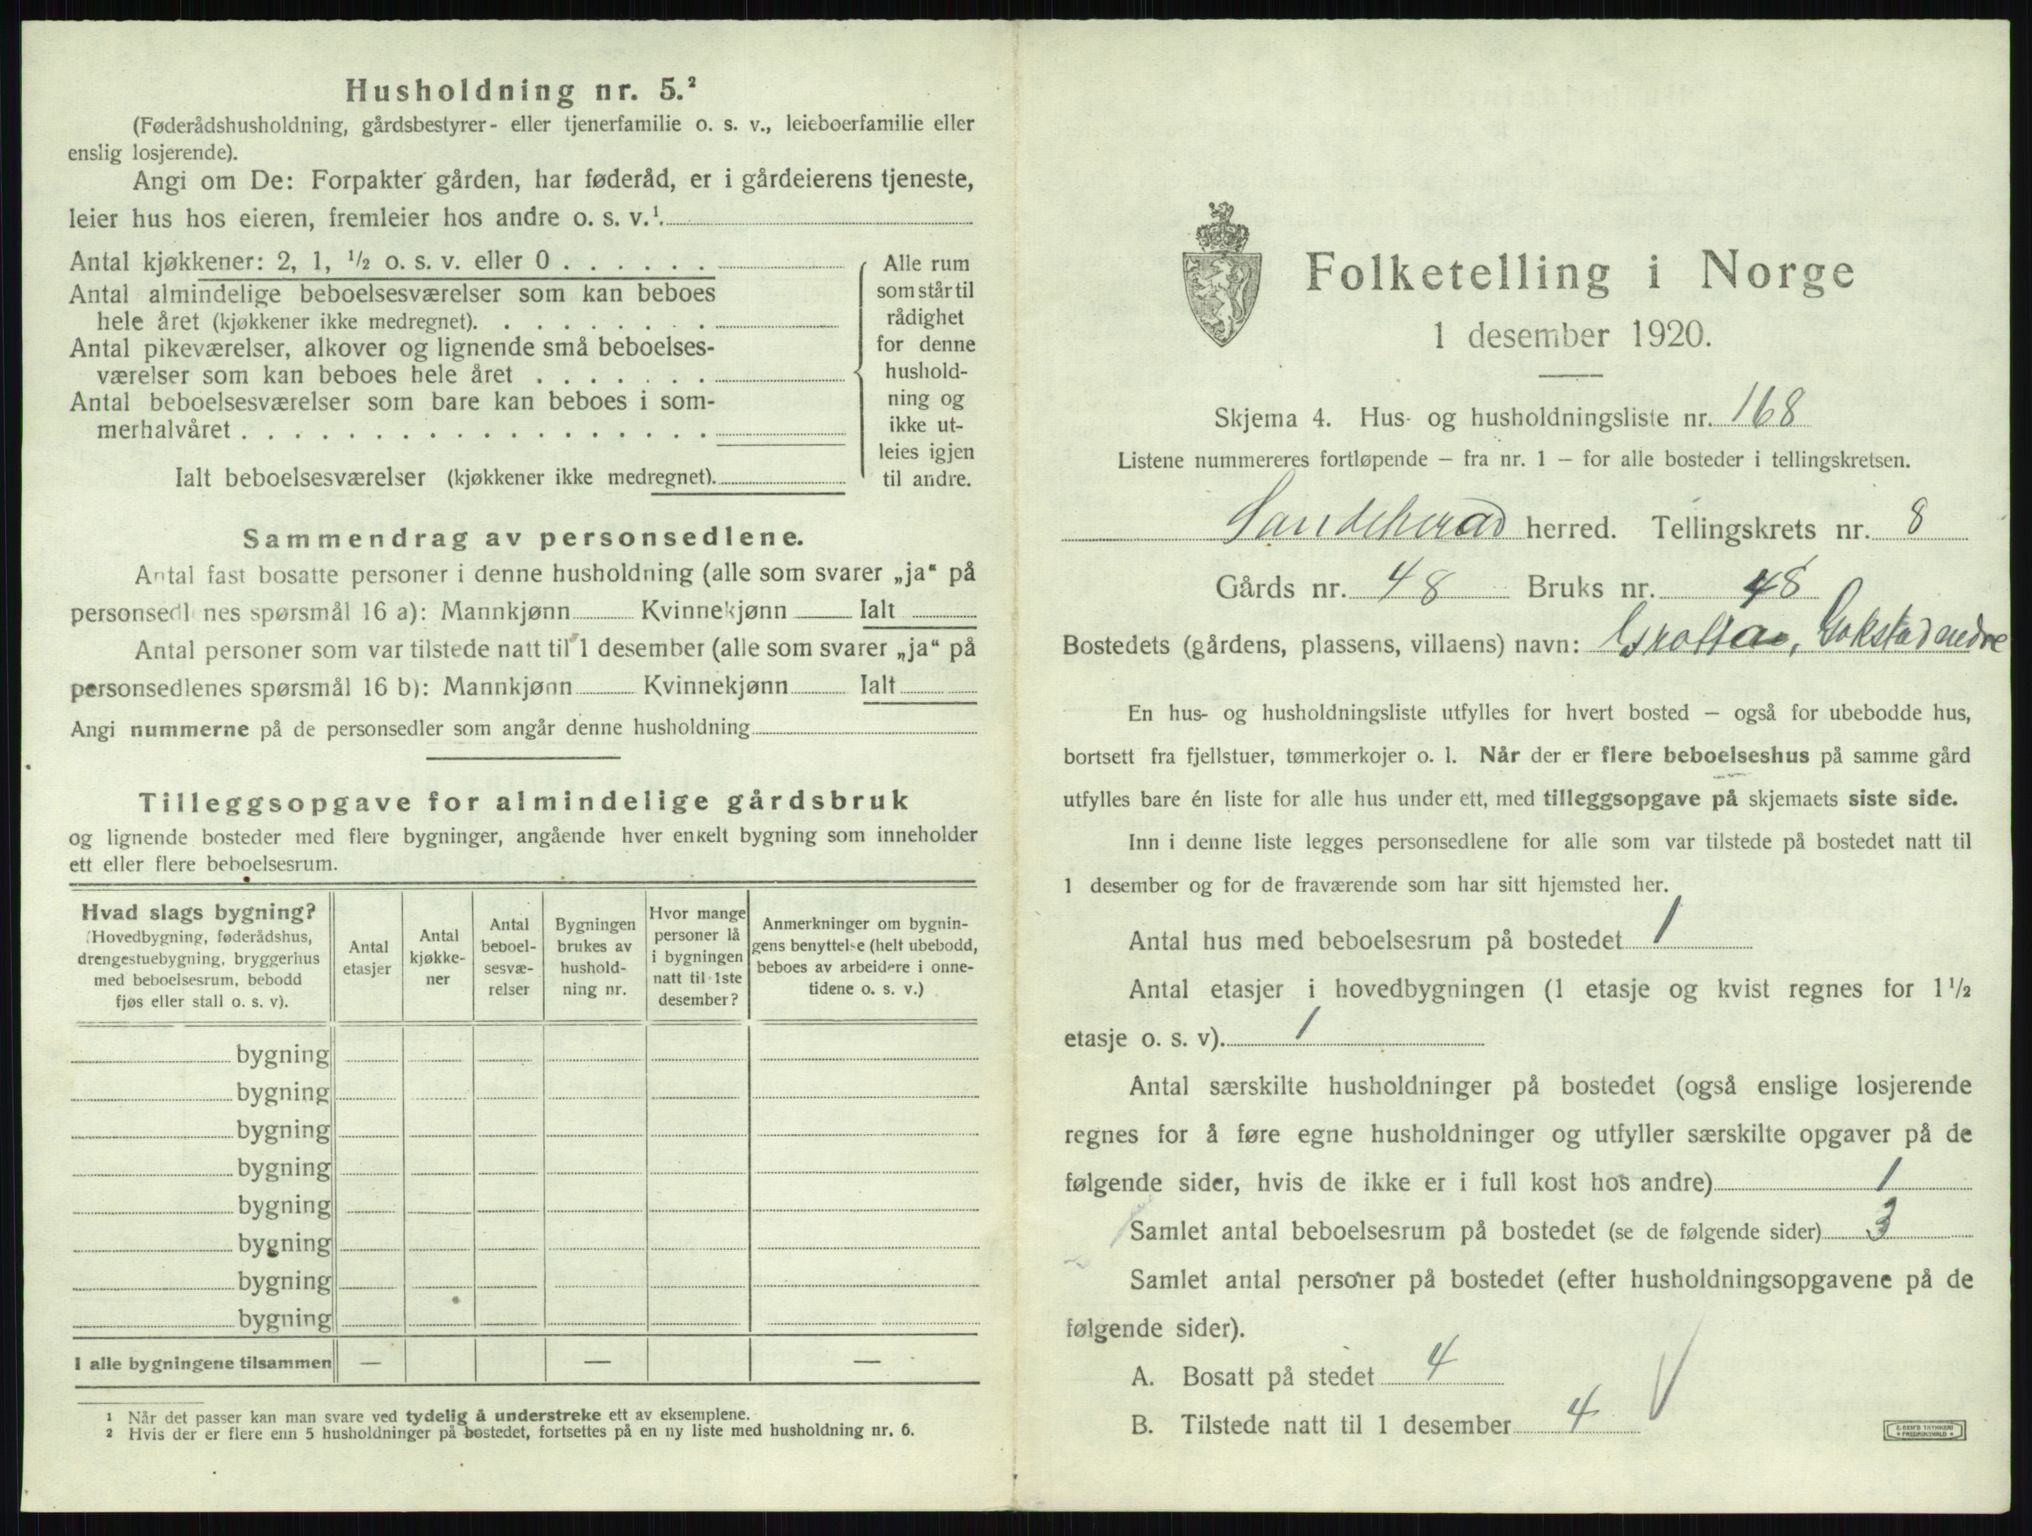 Husholdning nr. 5.²
(Føderådshusholdning, gårdsbestyrer- eller tjenerfamilie o. s. v., leieboerfamilie eller
enslig losjerende).
Angi om De: Forpakter gården, har føderåd, er i gårdeierens tjeneste,
leier hus hos eieren, fremleier hos andre o. s. v.¹
Antal kjøkkener: 2, 1, ½ o. s. v. eller 0
Antal almindelige beboelsesværelser som kan beboes
hele året (kjøkkener ikke medregnet).
Antal pikeværelser, alkover og lignende små beboelses-
værelser som kan beboes hele året
Antal beboelsesværelser som bare kan beboes i som-
merhalvåret
Ialt beboelsesværelser (kjøkkener ikke medregnet).
Alle rum
som står til
rådighet
for denne
hushold-
ning og
ikke ut-
leies igjen
til andre.
Sammendrag av personsedlene.
Antal fast bosatte personer i denne husholdning (alle som svarer „ja“ på
personsedlenes spørsmål 16 a): Mannkjønn Kvinnekjønn Ialt
Antal personer som var tilstede natt til 1 desember (alle som svarer „ja“ på
personsedlenes spørsmål 16 b): Mannkjønn Kvinnekjønn Ialt
Angi nummerne på de personsedler som angår denne husholdning
Tilleggsopgave for almindelige gårdsbruk
og lignende bosteder med flere bygninger, angående hver enkelt bygning som inneholder
ett eller flere beboelsesrum.
Hvad slags bygning?
(Hovedbygning, føderådshus,
drengestuebygning, bryggerhus
med beboelsesrum, bebodd
fjøs eller stall o. s. v).
Antal
etasjer
Antal
kjøkke-
ner
Antal
beboel-
sesvæ-
relser
Bygningen
brukes av
hushold-
ning nr.
Hvor mange
personer lå
i bygningen
natt til 1ste
desember?
Anmerkninger om bygnin-
gens benyttelse (helt ubebodd,
beboes av arbeidere i onne-
tidene o. s. v.)
bygning
bygning
bygning
bygning
bygning
bygning
bygning
bygning
I alle bygningene tilsammen — — —
1 Når det passer kan man svare ved tydelig å understreke ett av eksemplene.
2 Hvis der er flere enn 5 husholdninger på bostedet, fortsettes på en ny liste med husholdning nr. 6.
Folketelling i Norge
1 desember 1920.
Skjema 4. Hus- og husholdningsliste nr. 168
Listene nummereres fortløpende – fra nr. 1 – for alle bosteder i tellingskretsen.
Sandeherad herred. Tellingskrets nr. 8
Gårds nr. 48 Bruks nr. 48
Bostedets (gårdens, plassens, villaens) navn: Grottan, Gokstad nedre
En hus- og husholdningsliste utfylles for hvert bosted – også for ubebodde hus,
bortsett fra fjellstuer, tømmerkojer o. l. Når der er flere beboelseshus på samme gård
utfylles bare én liste for alle hus under ett, med tilleggsopgave på skjemaets siste side.
Inn i denne liste legges personsedlene for alle som var tilstede på bostedet natt til
1 desember og for de fraværende som har sitt hjemsted her.
Antal hus med beboelsesrum på bostedet 1
Antal etasjer i hovedbygningen (1 etasje og kvist regnes for 1½
etasje o. s. v). 1
Antal særskilte husholdninger på bostedet (også enslige losjerende
regnes for å føre egne husholdninger og utfyller særskilte opgaver på de
følgende sider, hvis de ikke er i full kost hos andre) 1
Samlet antal beboelsesrum på bostedet (se de følgende sider) 3
Samlet antal personer på bostedet (efter husholdningsopgavene på de
følgende sider).
A. Bosatt på stedet 4
B. Tilstede natt til 1 desember 4